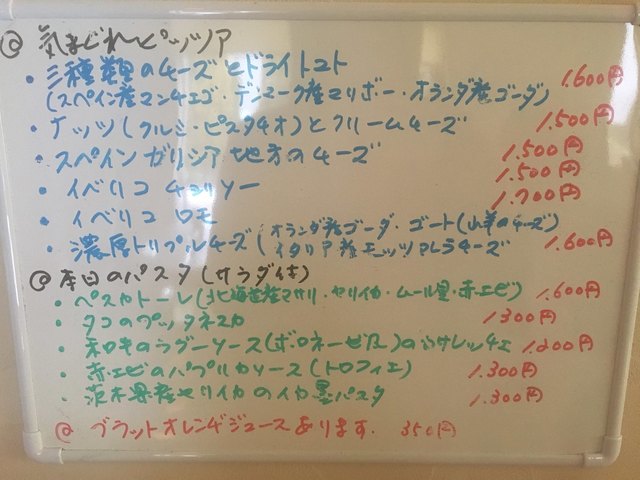 @ 気まぐれピッツァ
・三種類のチーズとドライトマト 1.600円
(スペイン産マンチェゴ・デンマーク産マリボー・オランダ産ゴーダ)
・ナッツ(クルミ・ピスタチオ)とクリームチーズ 1.500円
・スペインガリシア地方のチーズ 1.500円
・イベリコチョリソー 1.500円
・イベリコロモ 1.700円
・濃厚トリプルチーズ(オランダ産ゴーダ・ゴート(山羊のチーズ)
イタリア産モッツァレラチーズ 1.600円
@ 本日のパスタ(サラダ付)
・ペスカトーレ(北海道産アサリ・ヤリイカ・ムール貝・赤エビ) 1.600円
・タコのプッタネスカ 1.300円
・和牛のラグーソース(ボロネーゼ風)のカサレッチェ 1.200円
・赤エビのパプリカソース(トロフィエ) 1.300円
・茨木県産ヤリイカのイカ墨パスタ 1.300円
@ ブラットオレンジジュースあります. 350円